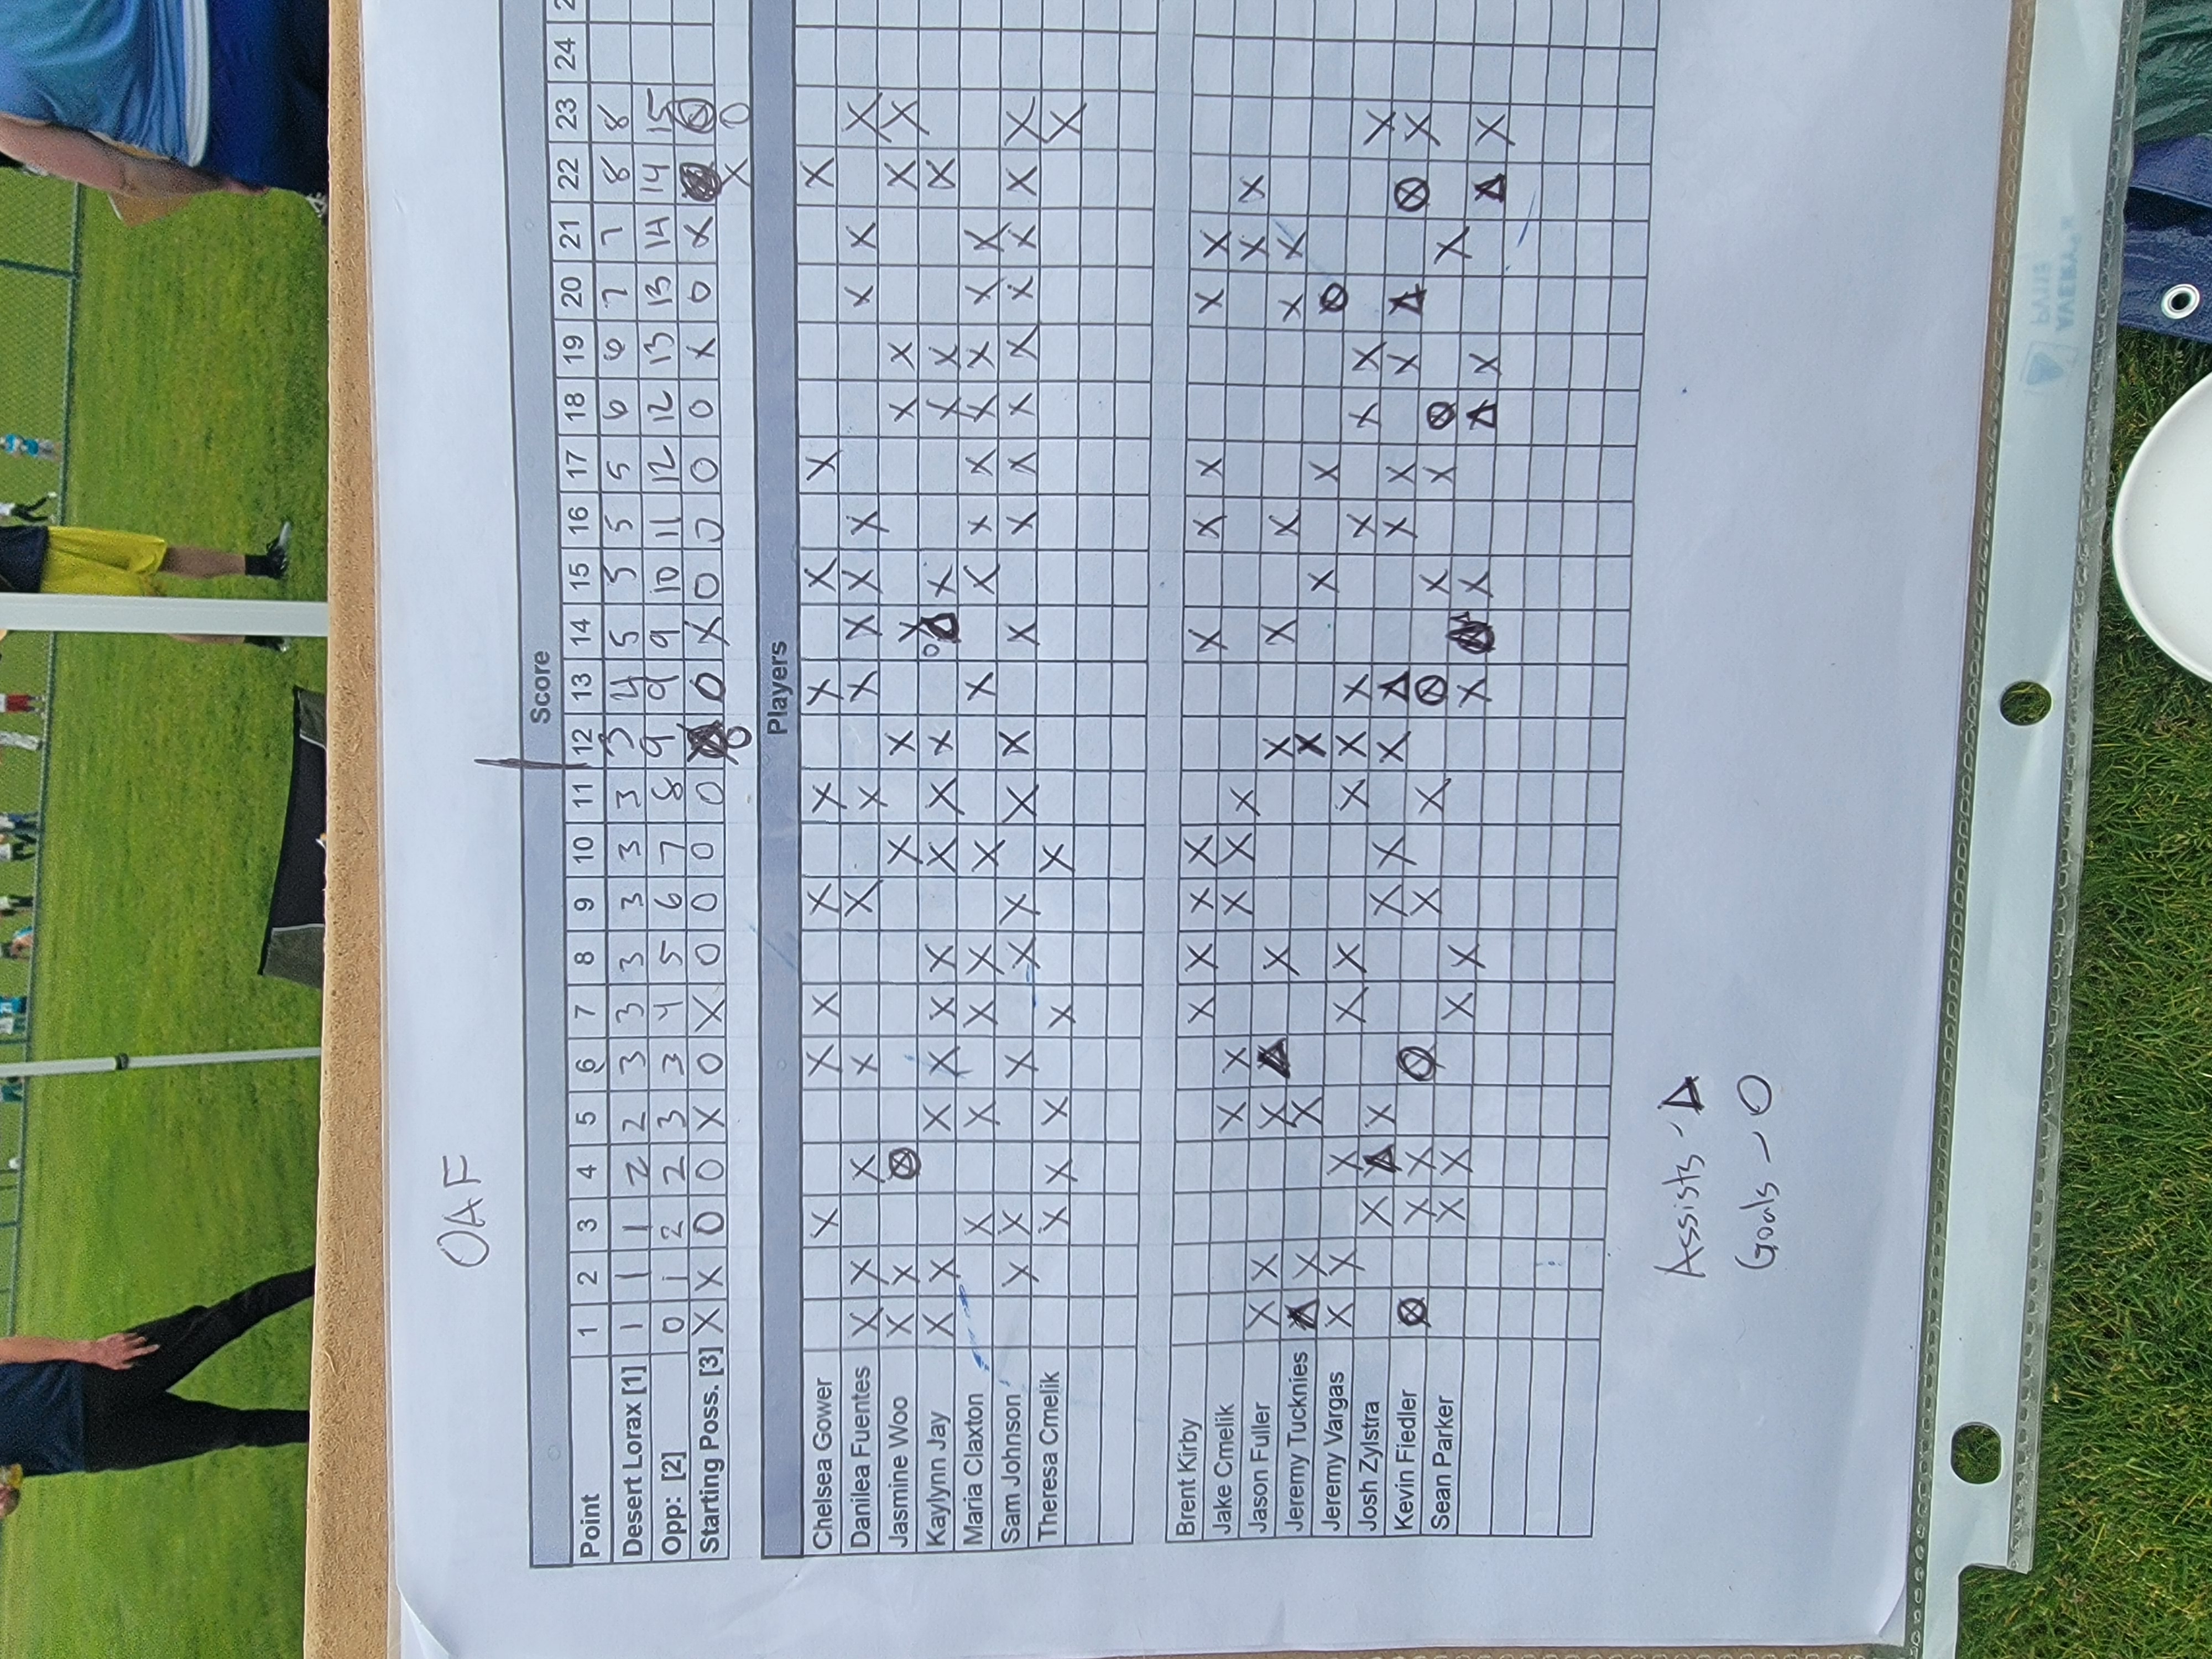 OAF
Score
Point 1 2 3 4 5 6 7 8 9 10 11 12 13 14 15 16 17 18 19 20 21 22 23 24 2
Desert Lorax [1] 1 1 1 2 2 3 3 3 3 3 3 3 4 5 5 5 5 6 6 7 7 8 8
Opp: [2] 0 1 2 2 3 3 4 5 6 7 8 9 9 9 10 11 12 12 13 13 14 14 15
Starting Poss. [3] X X O O X O X O O O O O X O O O O X O X
O X O
Players
Chelsea Gower X X X X X X X X X
Danilea Fuentes X X X X X X X X X X X X X
Jasmine Woo X X X X X X X X X X
Kaylynn Jay X X X X X X X X X O X X X X
Maria Claxton X X X X X X X X X X X X X
Sam Johnson X X X X X X X X X X X X X X X X
Theresa Cmelik X X X X X X
Brent Kirby X X X X X X X X X
Jake Cmelik X X X X X X X
Jason Fuller X X X X X X X X X
Jeremy Tucknies X X X X X O
Jeremy Vargas X X X X X X X X X X X X
Josh Zylstra X X X X X X X X X X
Kevin Fiedler X X X O X X X X X X X
Sean Parker X X X X X X X X
Assists - Δ
Goals - O
AVERY